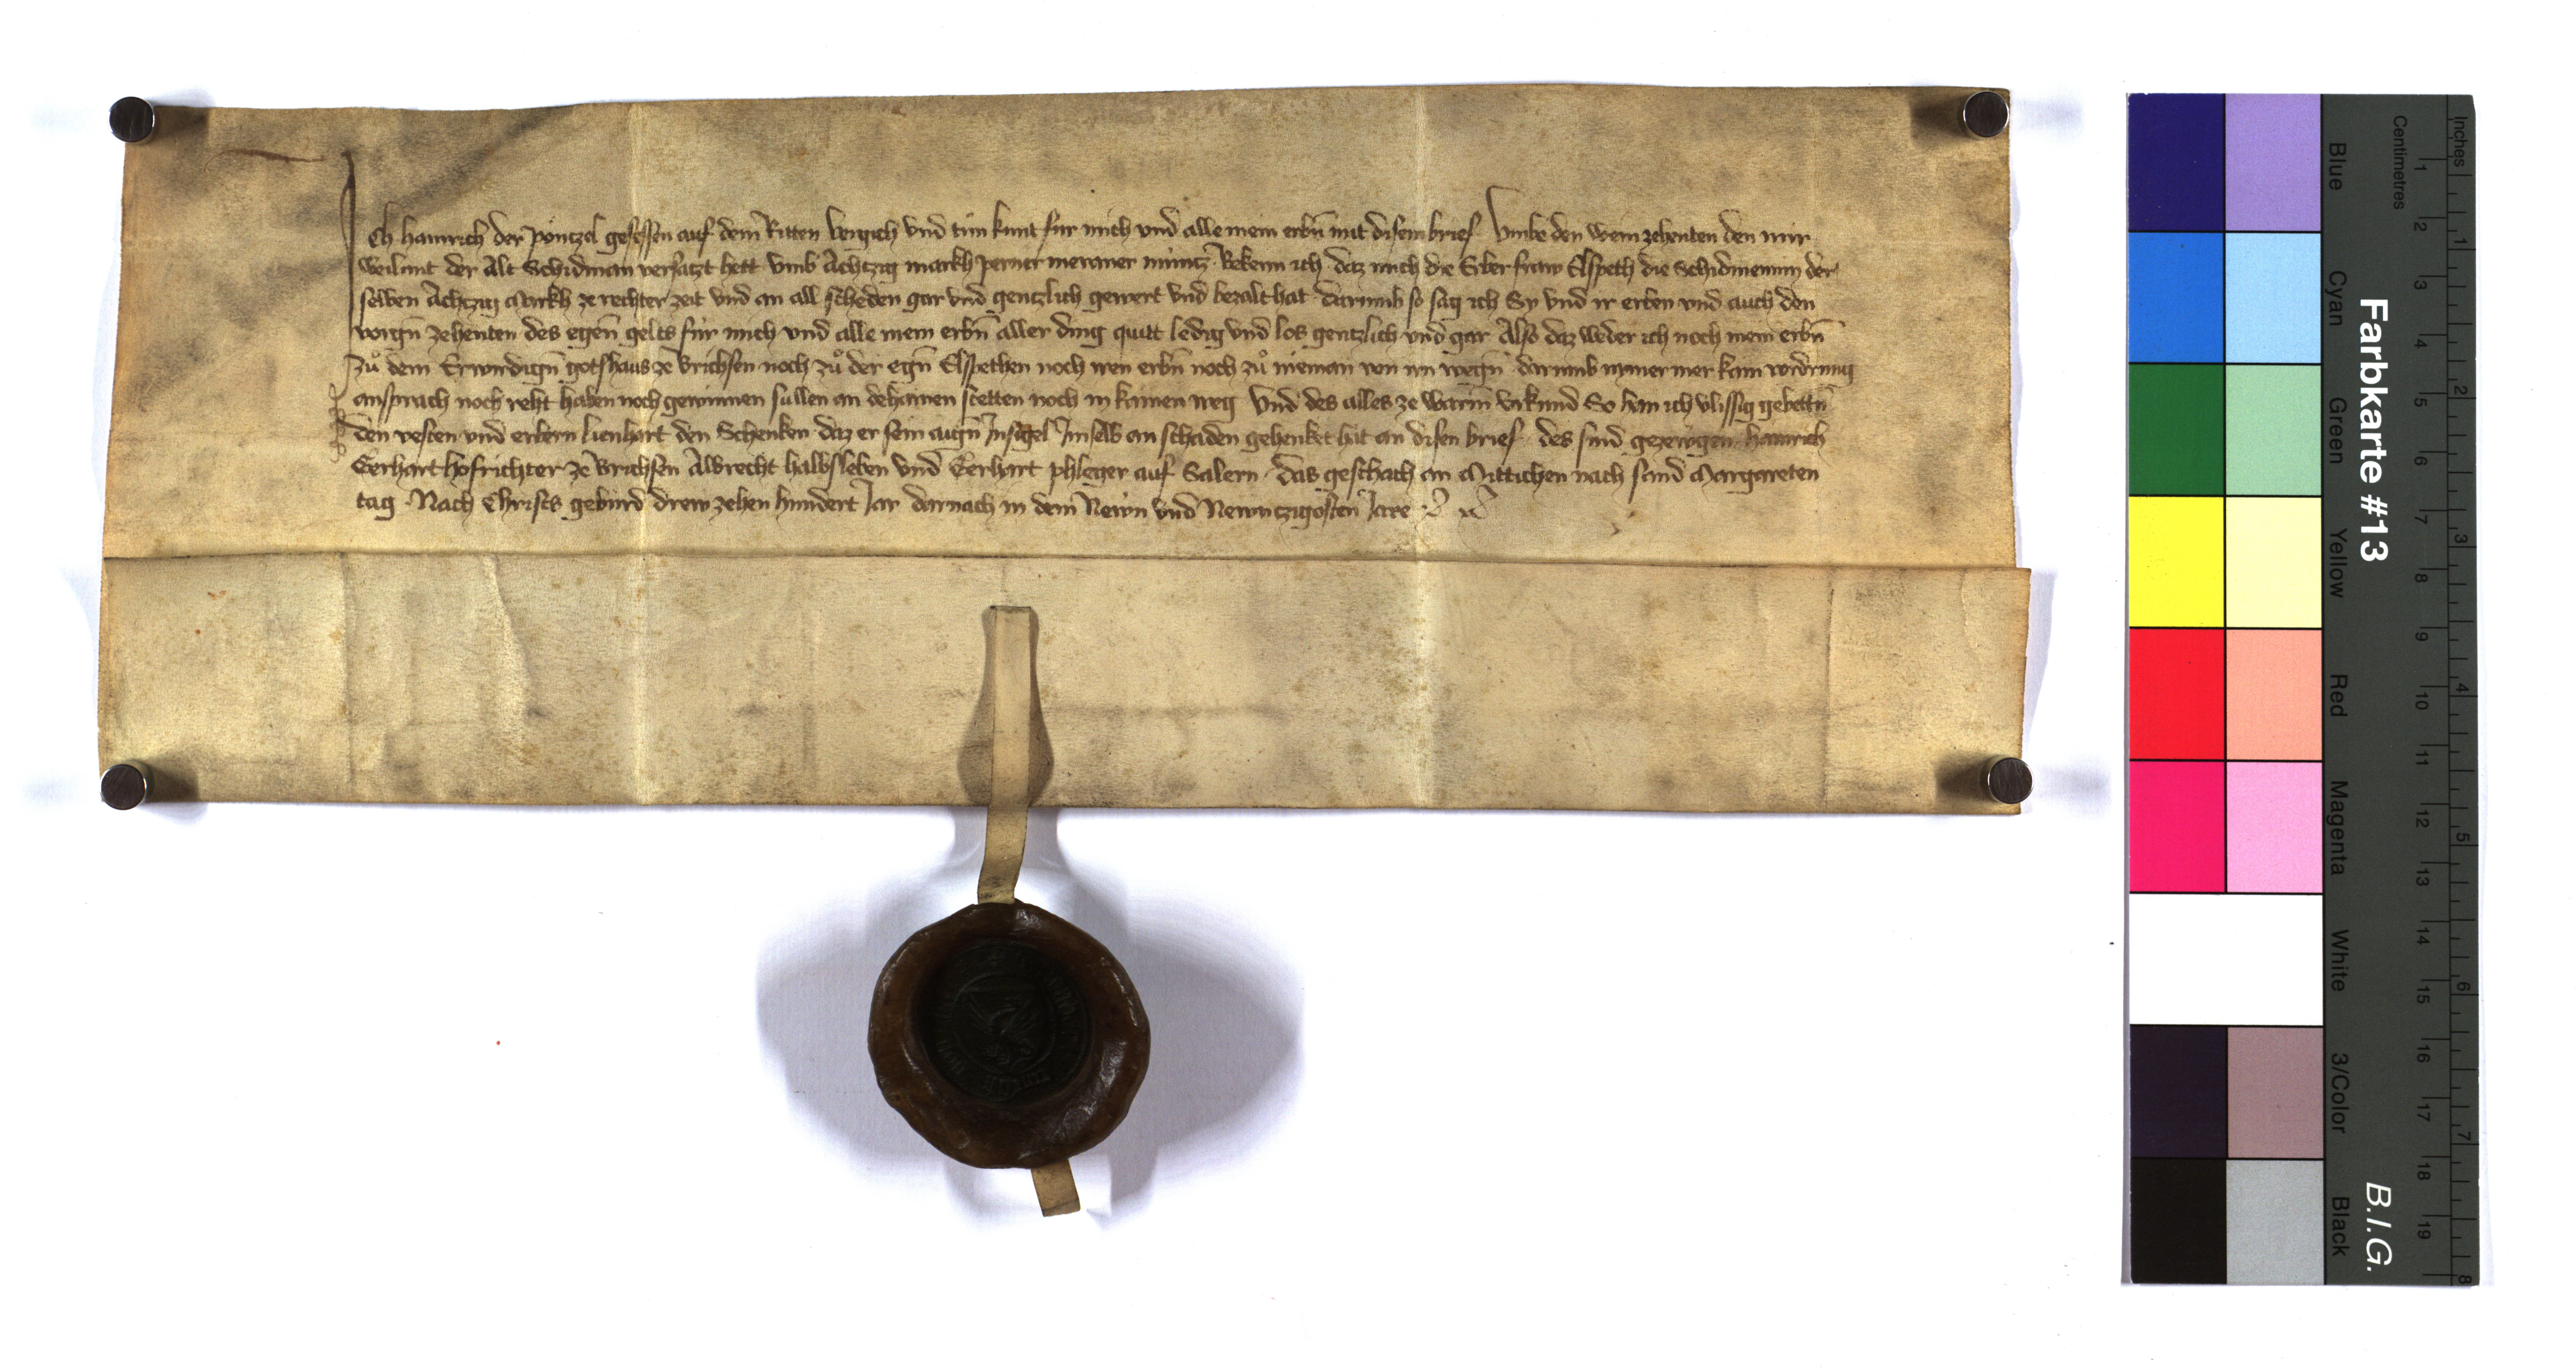 Ich Hainrich der Pontzel gesessen auf dem Ritten vergich vnd tun kunt fur mich vnd alle mein erbn̄ mit disem brief Vmbe den wein zehenten den mir
weilunt der Alt Schidman versatzt hett vmb Achtzig markh perner meraner munͦtz Bekenn ich daz mich die Erber fraw Elspeth die Schidmenin der
selben Achtzig Markh ze rechter zeit vnd an all scheden gar vnd gentzlich gewert vnd bezalt hat darumb so sag ich Sy vnd ir erben vnd auch den
vorgn̄ zehenten des egen̄ gelts fur mich vnd alle mein erbn̄ aller ding quitt ledig vnd los gentzlich vnd gar Also daz weder ich noch mein erbn̄
zuͦ dem Erwirdign̄ gotshaus ze Brichsen noch zuͦ der egn̄ Elspethen noch iren erbn̄ noch zuͦ nieman von irn wegn̄ darumb nymer mer kain vordrung
ansprach noch reht haben noch gewinnen sullen an dehainen stetten noch in kainen weg Vnd des alles ze warm̄ vrkund So han ich vlissig gebettn̄
den vesten vnd erbern Lienhart den Schenken daz er sein aign̄ Insigel Im selb an schaden gehenket hat an disen brief des sind gezewgen Hainrich
Gerhart hofrichter ze Brichsen Albrecht halbsleben vnd Gerhart phleger auf Salern das geschach an Mittichen nach sand Margareten
tag Nach Christs geburd drewzehen hundert Jar darnach in dem Newn vnd Newntzigosten Jare
Farbkarte #13
B.I.G.
Blue
Cyan
Green
Yellow
Red
Magenta
White
3/Color
Black
Centimetres
1 2 3 4 5 6 7 8 9 10 11 12 13 14 15 16 17 18 19
Inches
1 2 3 4 5 6 7 8